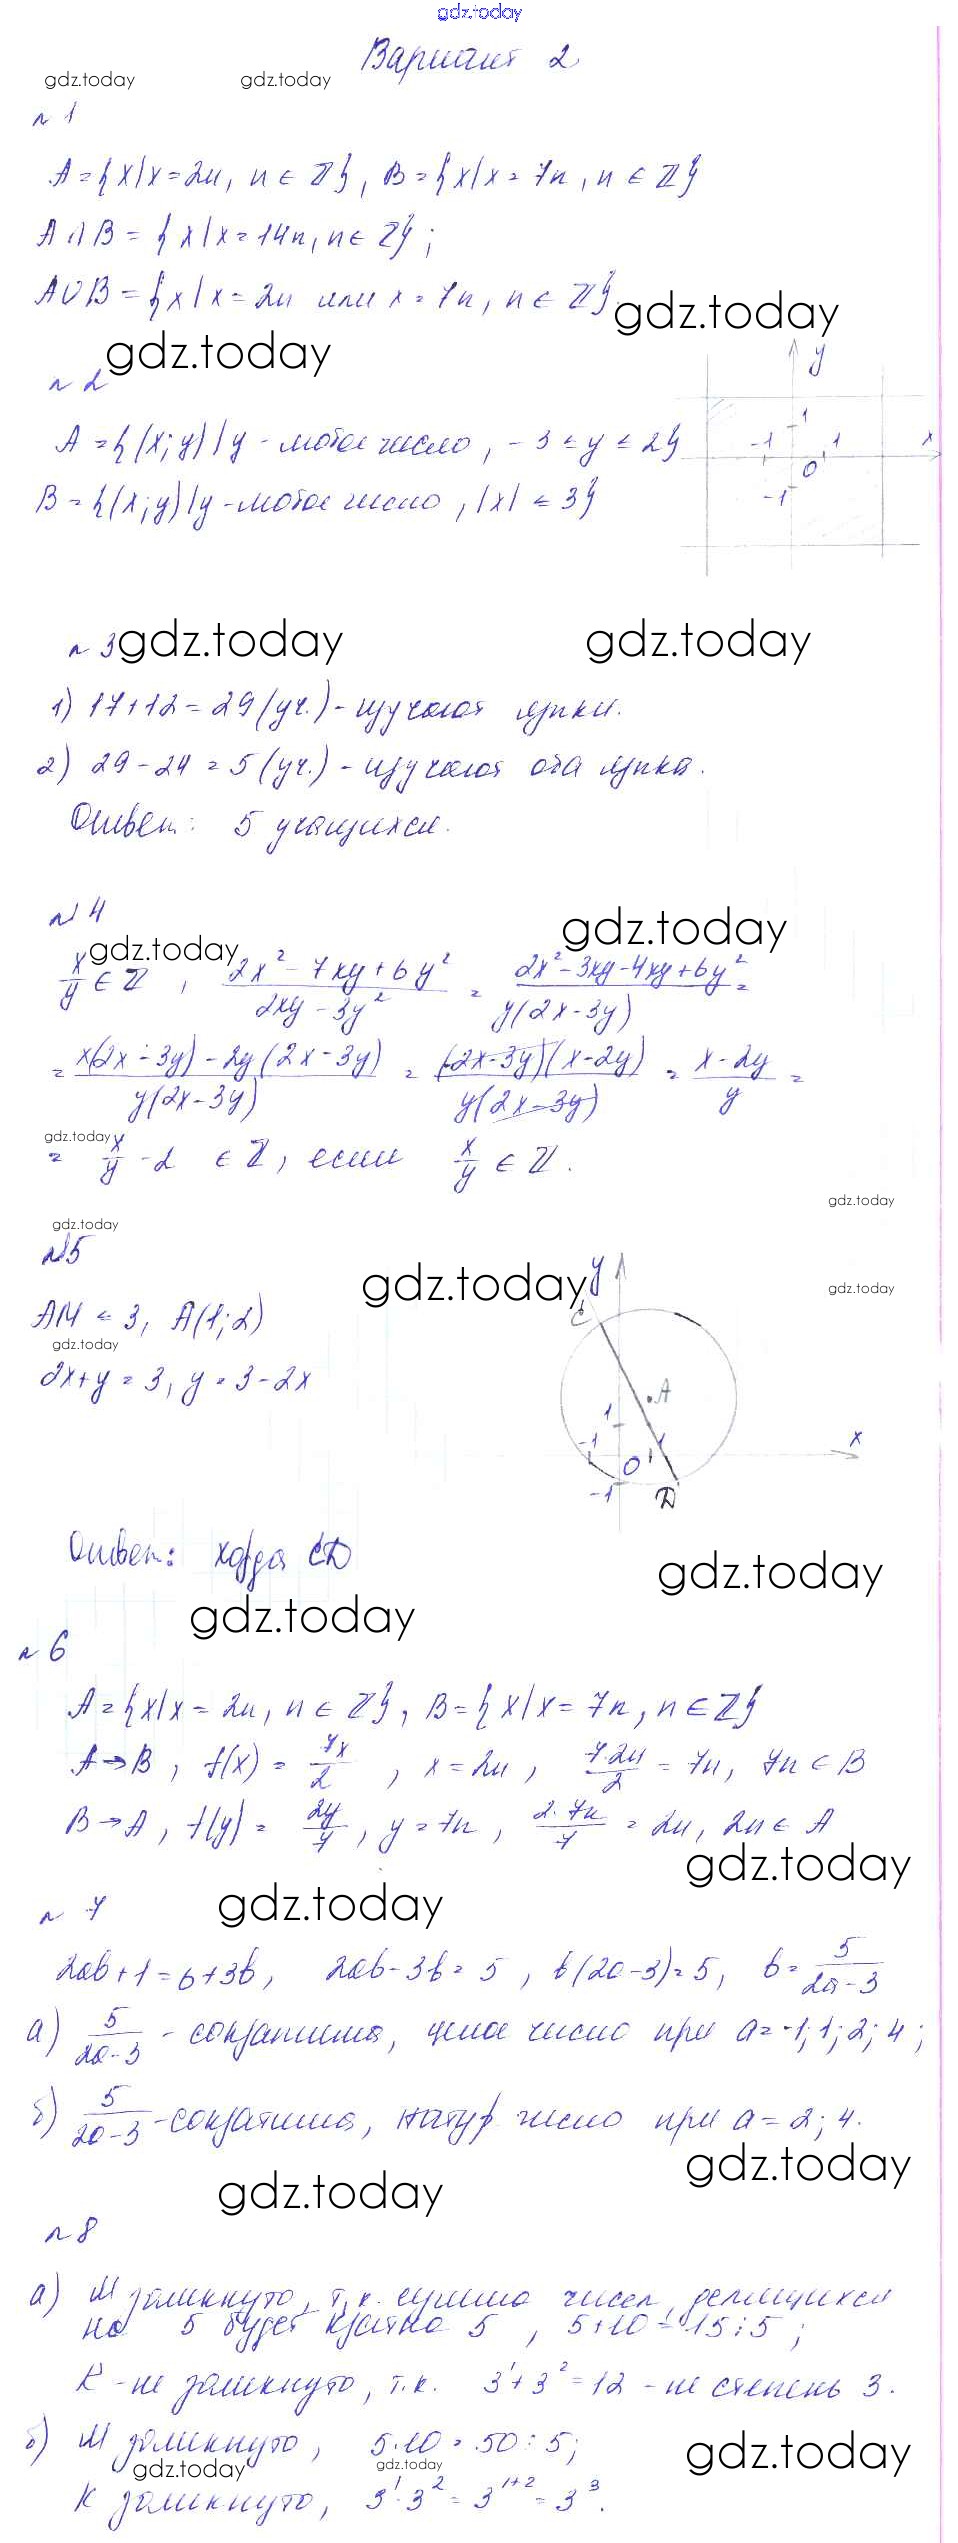 gdz.today
Вариант 2
gdz.today gdz.today
№ 1
A = {x/x = 2n, n ∈ Z}, B = {x/x = 7n, n ∈ Z}
A∩B = {x/x = 14n, n ∈ Z};
A∪B = {x/x = 2n или x = 7n, n ∈ Z}.
gdz.today
gdz.today
№ 2
A = {(x; y)/y - любое число, -3 ≤ y ≤ 2}
B = {(x; y)/y - любое число, |x| ≤ 3}
y
1
-1 1 x
0
-1
№ 3 gdz.today gdz.today
1) 17+12 = 29 (уч.) - изучают языки.
2) 29 - 24 = 5 (уч.) - изучают оба языка.
Ответ: 5 учащихся.
№ 4
gdz.today gdz.today
x/y ∈ Z, (2x² - 7xy + 6y²)/(2xy - 3y²) = (2x² - 3xy - 4xy + 6y²)/(y(2x - 3y)) =
= (x(2x - 3y) - 2y(2x - 3y))/(y(2x - 3y)) = ((2x - 3y)(x - 2y))/(y(2x - 3y)) = (x - 2y)/y =
gdz.today
= x/y - 2 ∈ Z, если x/y ∈ Z.
gdz.today
gdz.today
№ 5
gdz.today
gdz.today
AM ≤ 3, A(1; 2)
gdz.today
2x + y = 3, y = 3 - 2x
y
C
A
1
-1 1 x
0
-1 D
Ответ: хорда CD
gdz.today
gdz.today
№ 6
A = {x/x = 2n, n ∈ Z}, B = {x/x = 7n, n ∈ Z}
A → B, f(x) = 7x/2, x = 2n, 7·2n/2 = 7n, 7n ∈ B
B → A, f(y) = 2y/7, y = 7n, 2·7n/7 = 2n, 2n ∈ A
gdz.today
gdz.today
№ 7
2ab + 1 = 6 + 3b, 2ab - 3b = 5, b(2a - 3) = 5, b = 5/(2a - 3)
а) 5/(2a - 3) - сократима, целое число при a = -1; 1; 2; 4;
б) 5/(2a - 3) - сократима, натур. число при a = 2; 4.
gdz.today
gdz.today
№ 8
а) M замкнуто, т.к. сумма чисел, делящихся
на 5 будет кратна 5, 5+10 = 15 ⋮ 5;
K - не замкнуто, т.к. 3¹ + 3² = 12 - не степень 3.
б) M замкнуто, 5·10 = 50 ⋮ 5;
gdz.today
gdz.today gdz.today
K замкнуто, 3¹·3² = 3¹⁺² = 3³.